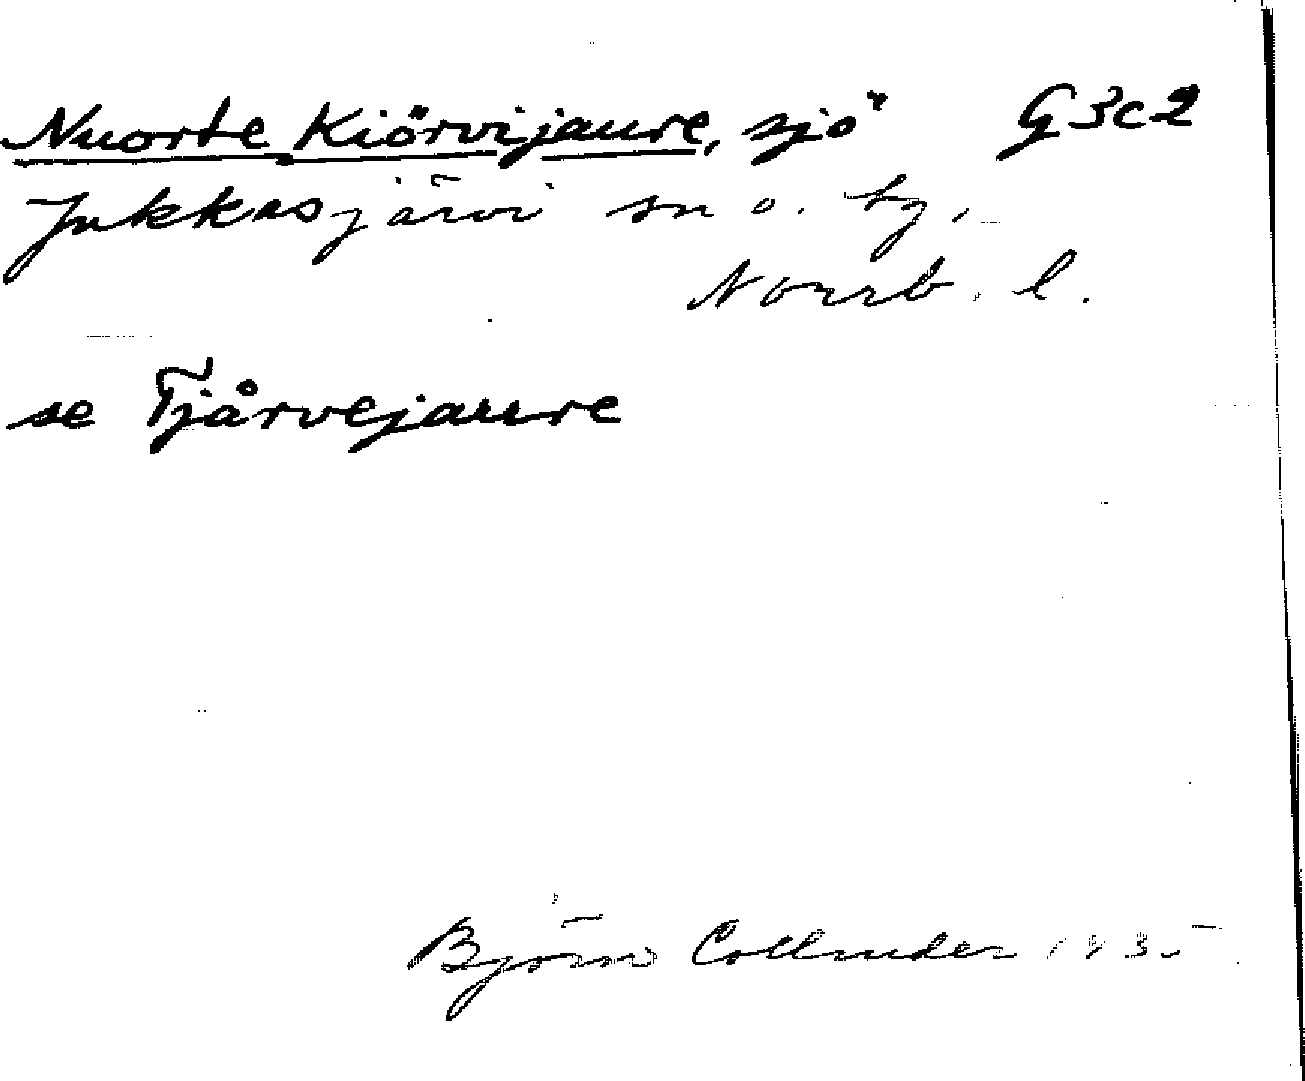 Nuorte Kiörvijaure, sjö G3c2
Jukkasjärvi sn o. by,
Norrb. l.
se Tjårvejaure
Björn Collinder 1935